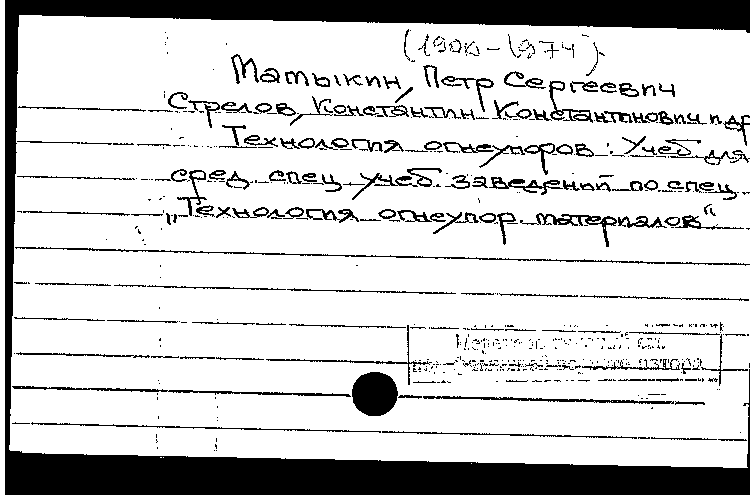 (1900-1974)
Мамыкин, Петр Сергеевич
Стрелов, Константин Константинович и др
Технология огнеупоров: Учеб. для
сред. спец. учеб. заведений по спец.
„Технология огнеупор. материалов“
автора